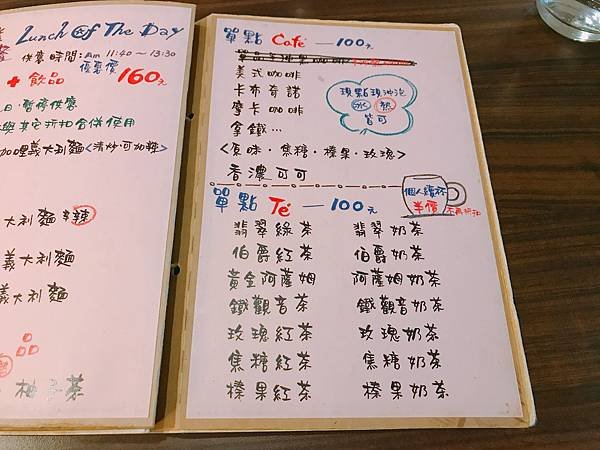 Lunch Of The Day
供意時間:Am 11:40~13:30
優惠價 160元
+ 飲品
日暫停供應
與其它折扣合併使用
加哩義大利麵<清炒可加辣>
大利麵 辣
義大利麵
義大利麵
柚子茶
單點 Café —100元
美式咖啡
卡布奇諾
摩卡咖啡
拿鐵…
<原味·焦糖·榛果·玫瑰>
香濃可可
現點現沖泡
冰 熱
皆可
單點 Té —100元
個人續杯
半價 不再折扣
翡翠綠茶 翡翠奶茶
伯爵紅茶 伯爵奶茶
黃金阿薩姆 阿薩姆奶茶
鐵觀音茶 鐵觀音奶茶
玫瑰紅茶 玫瑰奶茶
焦糖紅茶 焦糖奶茶
榛果紅茶 榛果奶茶